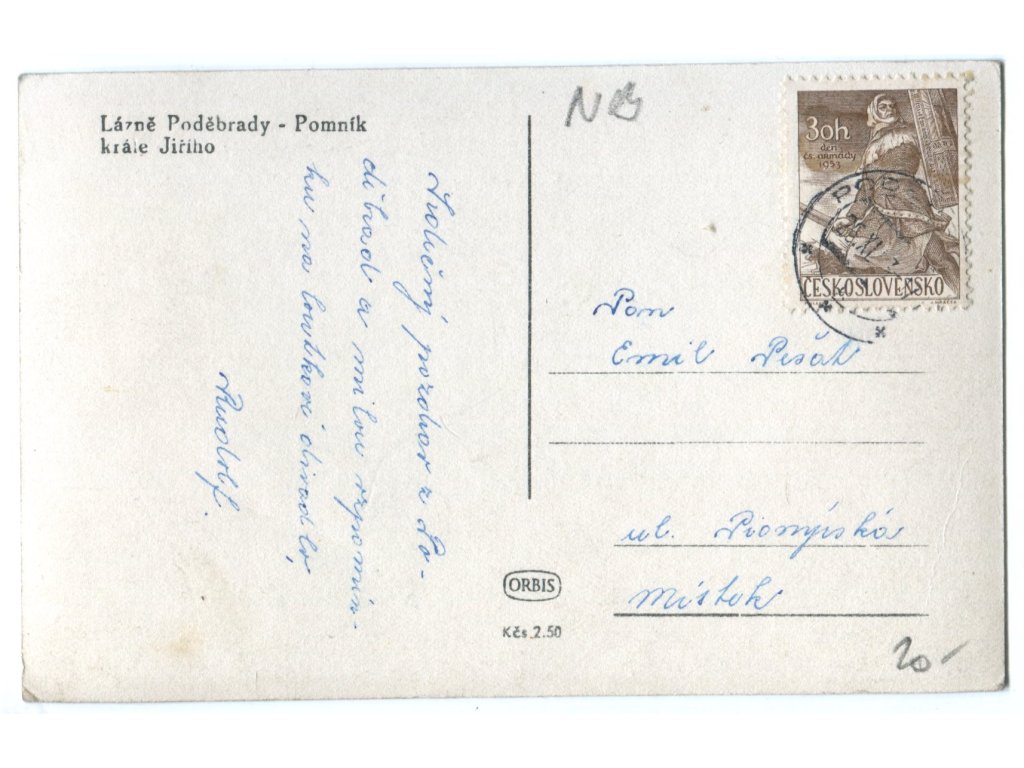 Lázně Poděbrady - Pomník
krále Jiřího
NB
30h
den
čs. armády
1953
ČESKOSLOVENSKO
Srdečný pozdrav z Po-
děbrad a milou vzpomín-
ku na loutkové divadlo
Rudolf.
Pan
Emil Pešát
ul. Pionýrská
Místek
ORBIS
Kčs 2.50
20-